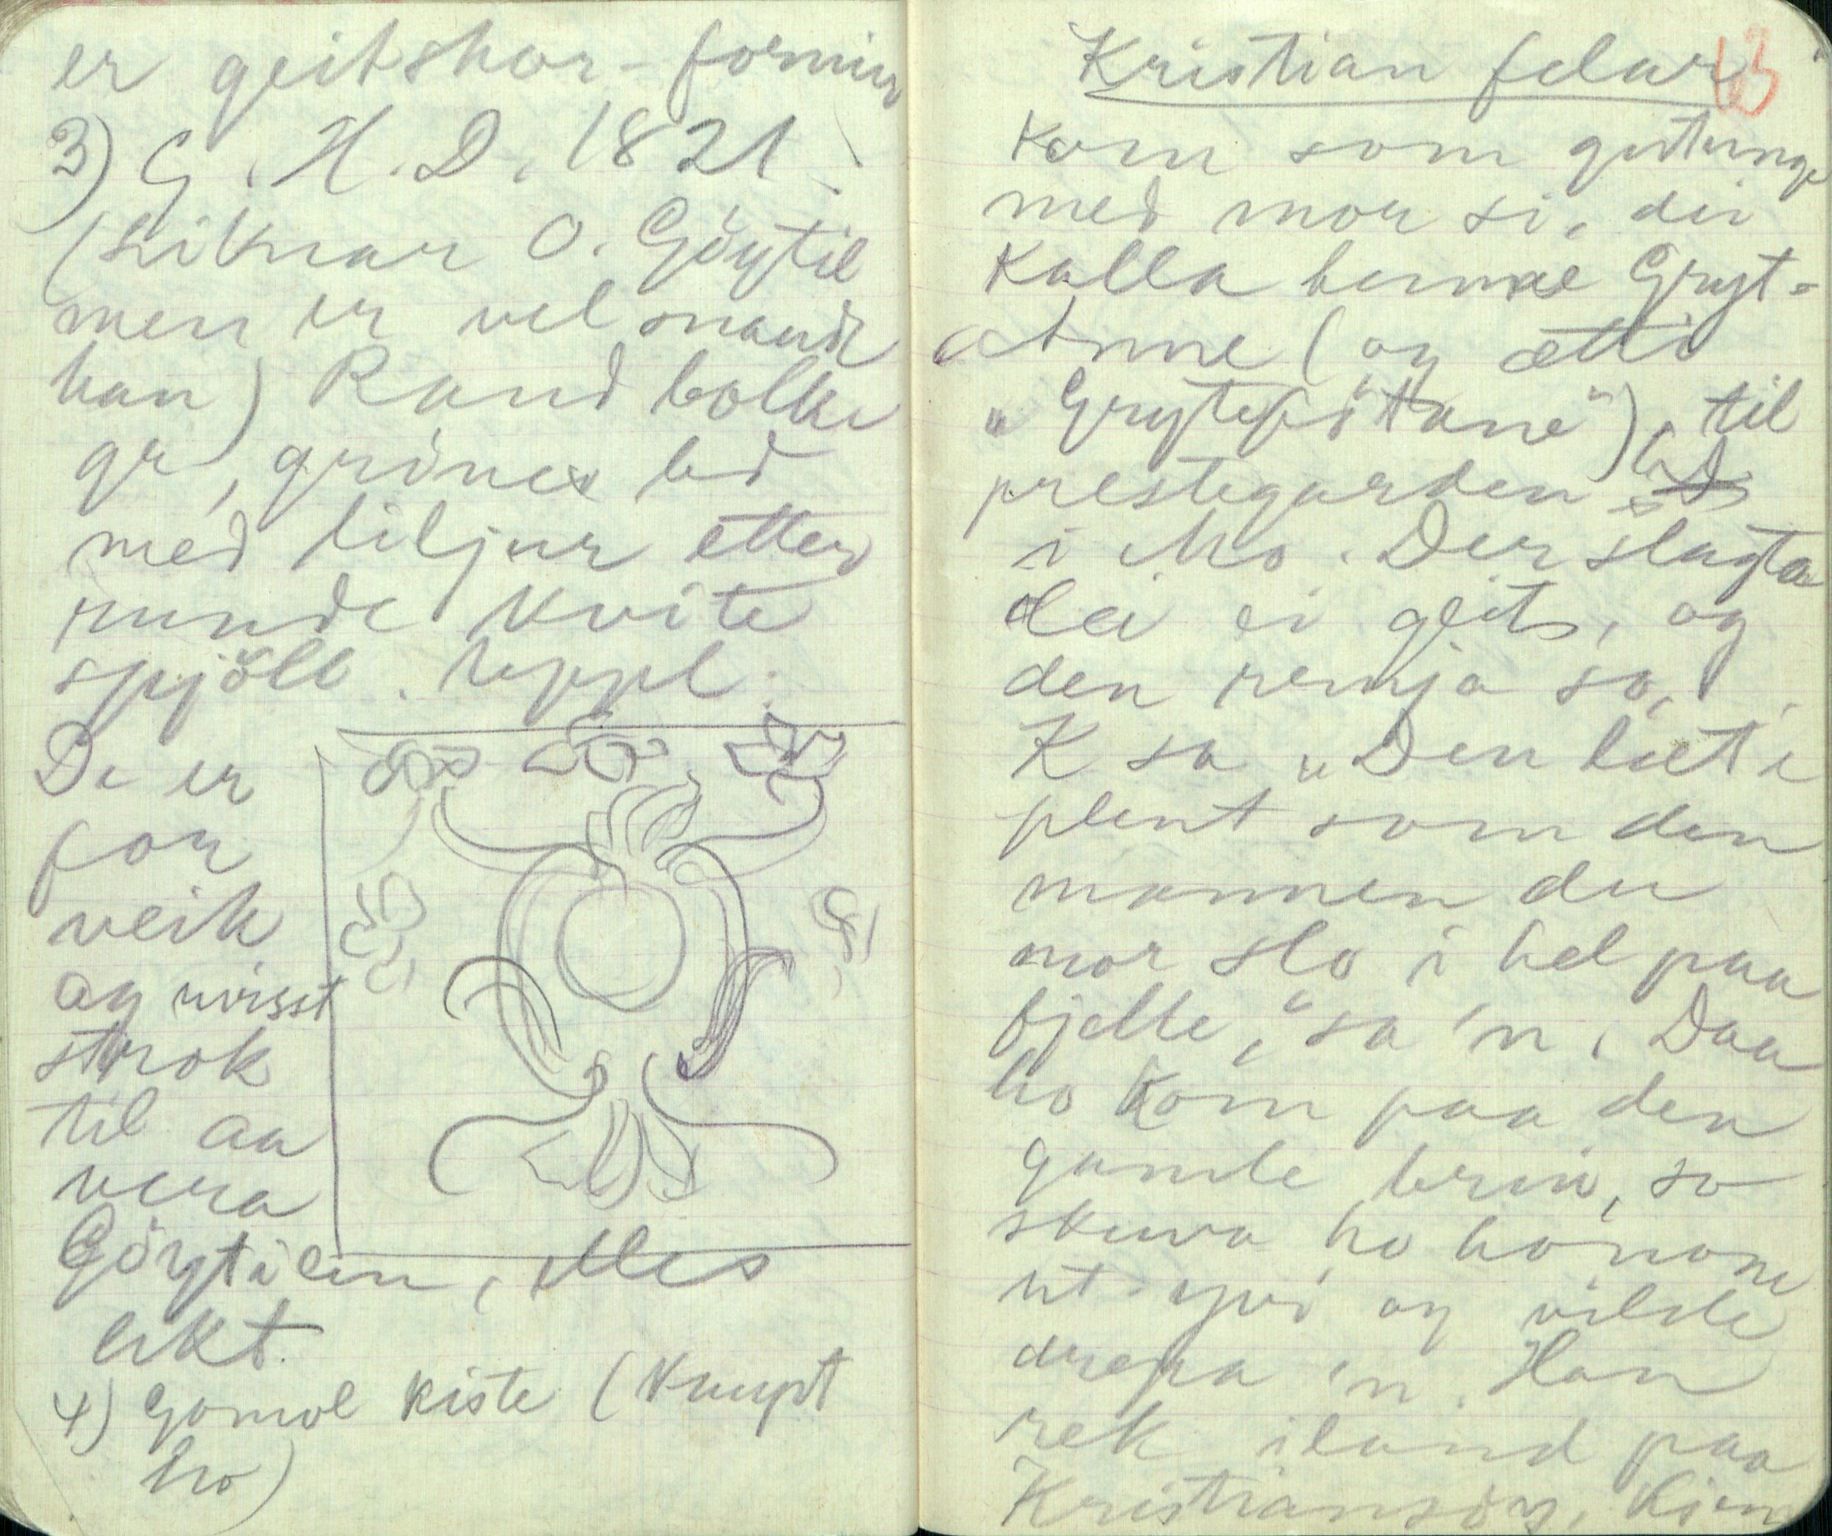 er geitskor-formin
3) G. H. D. 1821.
(Liknar O. Göytil
men er vel snaudt
han) Raud bolke
gr, gröner bd
med liljur etter
runde kvite
spjöll. Uppl:
De er
for
veik
og uvisst
strok
til aa
vera
Göytilen, elles
likt.
4) Gomol kiste (knapt
ho)
Kristian felar
63
Kom som gutunge
med mor si, dei
kalla henne Gryt-
Anne (og ætti
„Gryteföttane"), til
prestegarden
i Mo. Der slagta
dei ei geit, og
den remja so,
K sa „Den læt i
plent som den
mannen du
mor slo i hel paa
fjelle," sa 'n. Daa
ho kom paa den
gamle brui, so
skuva ho honom
ut-yvi og vilde
drepa 'n. Han
rek iland paa
Kristiansöy,